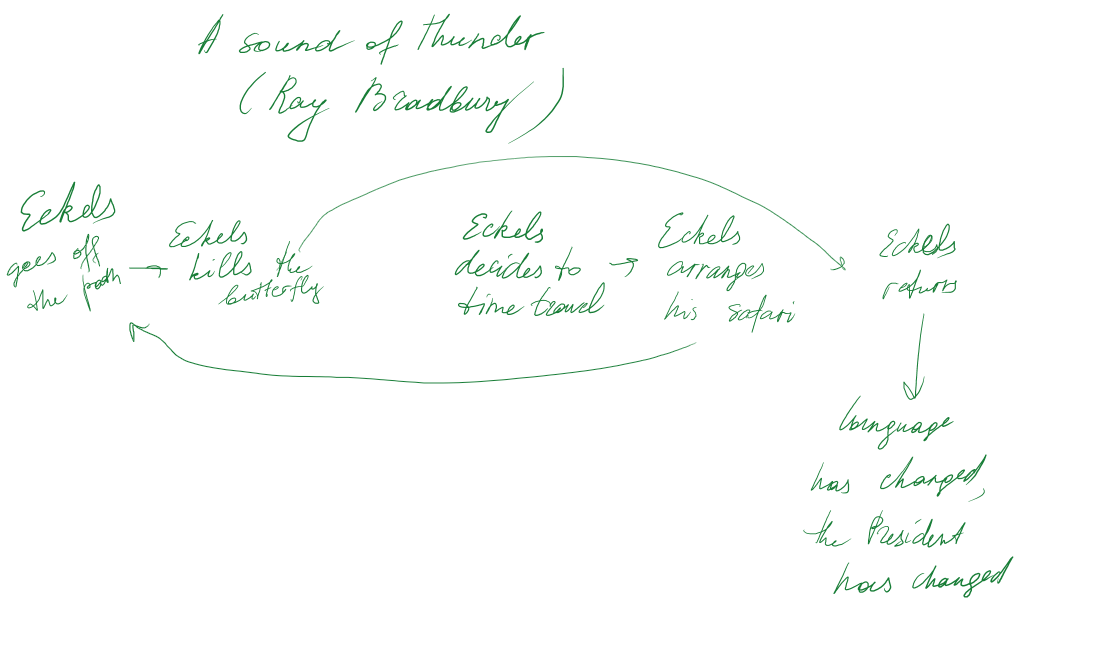 A sound of thunder
(Ray Bradbury)
Eckels
goes off
the path
Eckels
kills the
butterfly
Eckels
decides to
time travel
Eckels
arranges
his safari
Eckels
returns
language
has changed,
the President
has changed